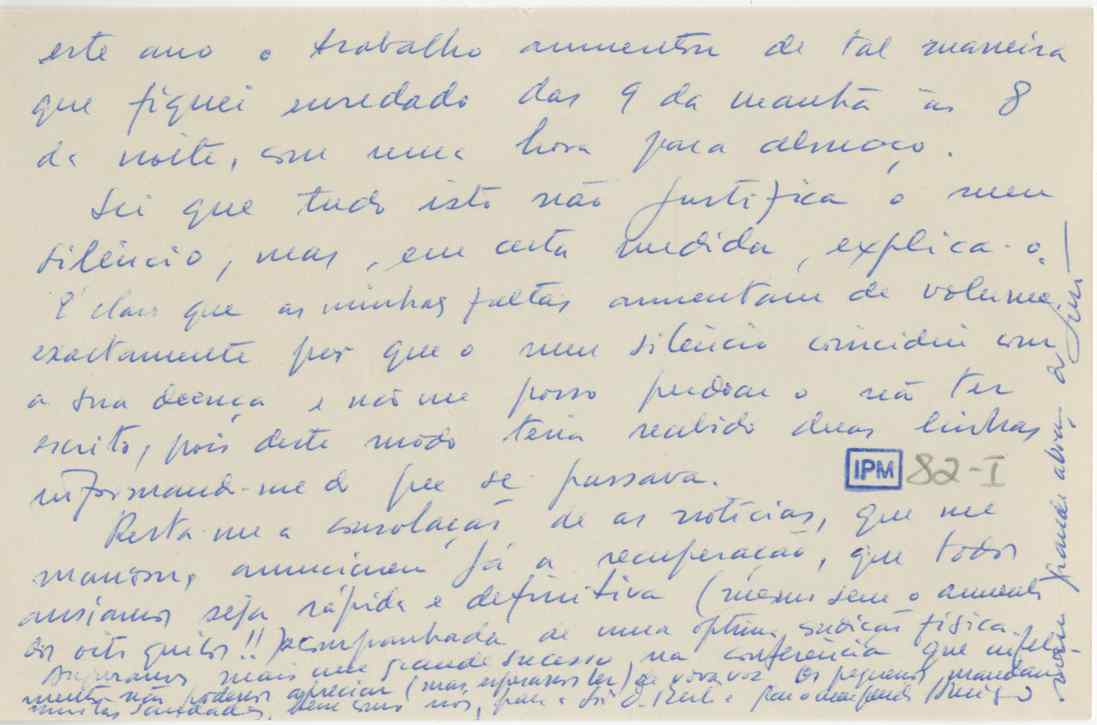 este ano o trabalho aumentou de tal maneira
que fiquei enredado das 9 da manhã às 8
da noite, com uma hora para almoço.
Sei que tudo isto não justifica o meu
silêncio, mas, em certa medida, explica-o.
É claro que as minhas faltas aumentam de volume
exactamente por que o meu silêncio coincidiu com
a sua doença e não me posso perdoar o não ter
escrito, pois deste modo teria recebido duas linhas
informando-me do que se passava.
IPM 82-I
Resta-me a consolação de as notícias, que me
mandou, anunciarem já a recuperação, que todos
ansiamos seja rápida e definitiva (mesmo sem o aumento
dos oito quilos!!) acompanhada de uma óptima condição física.
Auguramos mais um grande sucesso na conferência que infeliz-
mente não podemos apreciar (mas esperamos ler) de viva voz. Os pequenos mandam
muitas saudades, bem como nós, para a Srª D. e para o meu grande Amigo
vai um grande abraço do